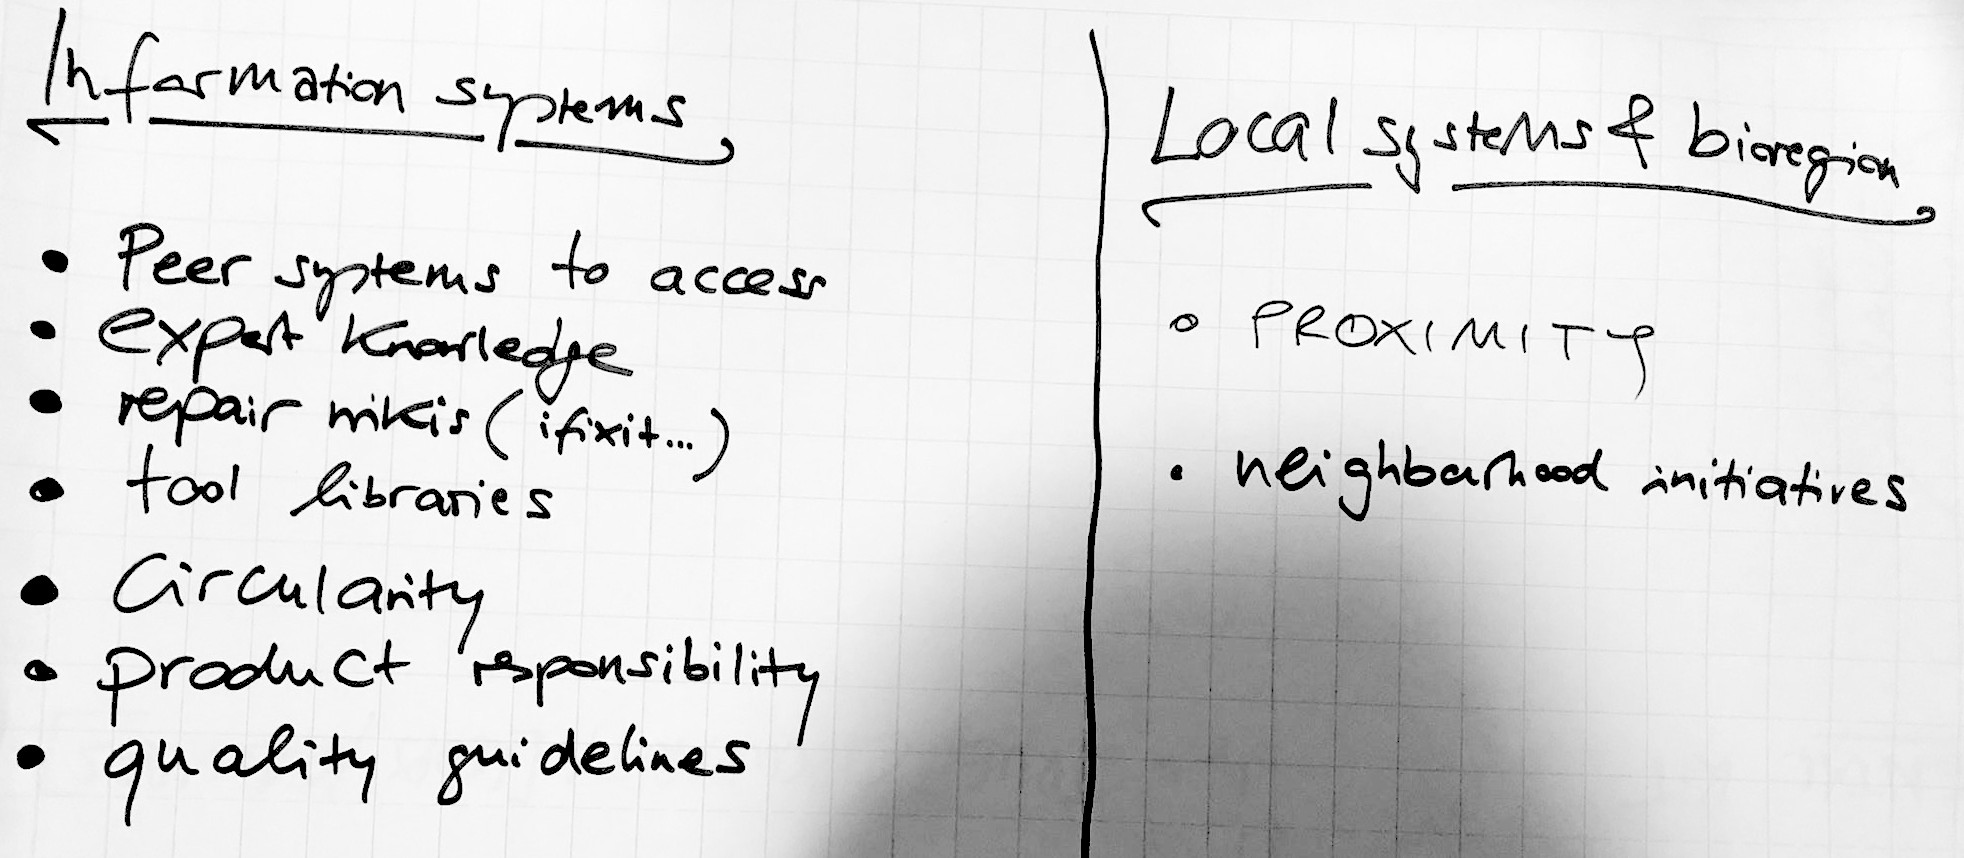 Information systems
• Peer systems to access
• expert knowledge
• repair wikis (ifixit...)
• tool libraries
• Circularity
• product responsibility
• quality guidelines
Local systems & bioregion
• PROXIMITY
• neighbourhood initiatives